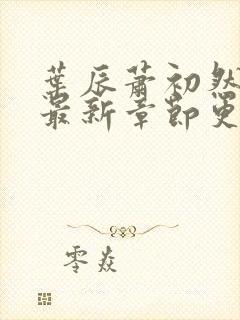 葉辰蕭初然
最新章節更
零焱